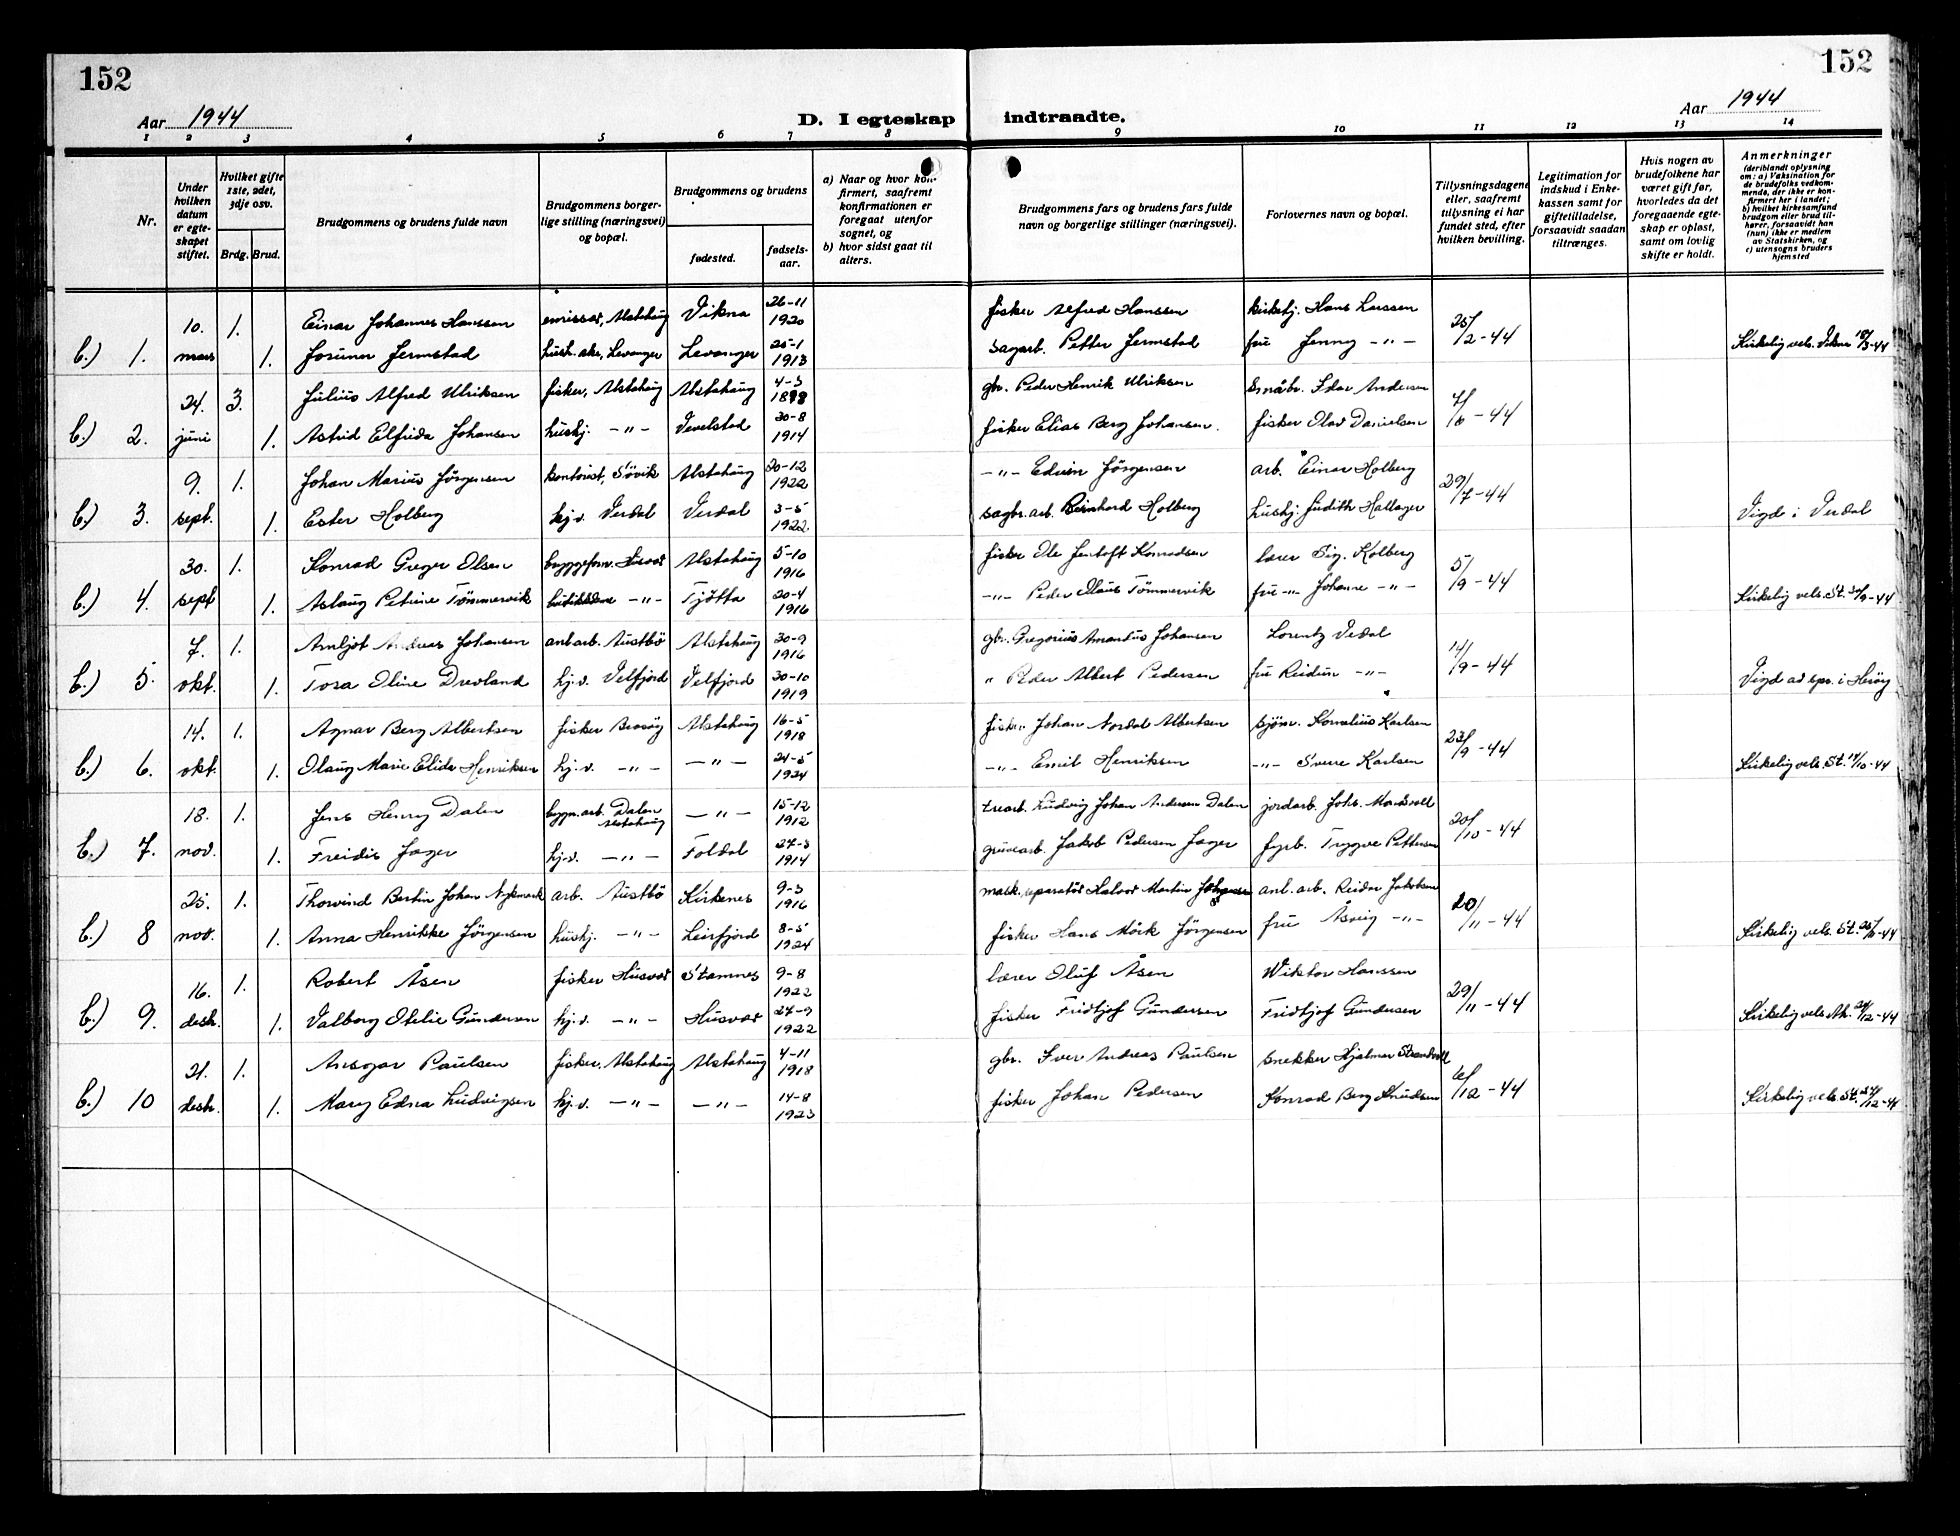 152
152
Aar 1944
D. I egteskap indtraadte.
Aar 1944
1 2 3 4 5 6 7 8 9 10 11 12 13 14
Nr.
Under hvilken datum er egteskapet stiftet.
Hvilket gifte 1ste, 2det, 3dje osv.
Brdg. Brud.
Brudgommens og brudens fulde navn
Brudgommens borgerlige stilling (næringsvei) og bopæl.
Brudgommens og brudens
fødested.
fødselsaar.
a) Naar og hvor konfirmert, saafremt konfirmationen er foregaat utenfor sognet, og
b) hvor sidst gaat til alters.
Brudgommens fars og brudens fars fulde navn og borgerlige stillinger (næringsvei).
Forlovernes navn og bopæl.
Tillysningsdagene eller, saafremt tillysning ei har fundet sted, efter hvilken bevilling.
Legitimation for indskud i Enkekassen samt for giftetilladelse, forsaavidt saadan tiltrænges.
Hvis nogen av brudefolkene har været gift før, hvorledes da det foregaaende egteskap er opløst, samt om lovlig skifte er holdt.
Anmerkninger
(deriblandt oplysning om: a) Vaksination for de brudefolks vedkommende, der ikke er konfirmert her i landet; b) hvilket kirkesamfund brudgom eller brud tilhører, forsaavidt han (hun) ikke er medlem av Statskirken, og c) utensogns bruders hjemsted
10. 1. Einar Johannes Hanssen emissær, Alstahaug Vikna 26-11 1920 fisker Alfred Hanssen kirketj. Hans Larssen 25/2-44
b.) 1. mars 1. Jermstad Levanger Levanger 25-1 1913 sagarb. Petter Jermstad fru Jenny -"- Kirkelig vels. Vikna 18/3-44
24. 3. Julius Alfred Ulriksen fisker, Alstahaug Alstahaug 4-3 gbr. Peder Henrik Ulriksen småbr. Idar Andersen 4/6-44
b.) 2. juni 1. Astrid Elfrida Johansen hushj. -"- Vevelstad 30-8 1914 fisker Elias Berg Johansen. fisker Olav Danielsen
9. 1. Johan Marius Jørgensen kontorist, Søvik Alstahaug 20-12 1922 -"- Edvin Jørgensen arb. Einar Holberg 29/7-44
b.) 3. sept. 1. Ester Holberg hj.v. Verdal Verdal 3-5 1922 sagbr.arb. Bernhard Holberg hushj. Judith Hallager Vigd i Verdal
30. 1. Konrad Greger Olsen byggeform. Husvær Alstahaug 5-10 1916 fisker Ole Jentoft Konradsen lærer Sig. Kolberg 5/9-44
b.) 4. sept 1. Aslaug Petrine Tømmervik -"- Tjøtta 20-4 1916 -"- Peder Olaus Tømmervik fru -"- Johanne -"- Kirkelig vels. St. 30/9-44
7. 1. Arnljot Andreas Johansen anl.arb. Austbø Alstahaug 30-9 1916 gbr. Gregorius Amandus Johansen Lorentz Vedal 14/9-44
b.) 5. okt. 1. Tora Oline Drevland hj.v. Velfjord Velfjord 30-10 1919 " Peder Albert Pedersen fru Reidun -"- Vigd av spr. i Herøy
14. 1. Agnar Berg Albertsen fisker Belsøy Alstahaug 16-5 1918 fisker Johan Nordal Albertsen sjøm. Kornelius Karlsen 23/9-44
b.) 6. okt. 1. Olaug Marie Elida Henriksen hj.v. -"- -"- 24-5 1924 -"- Emil Henriksen -"- Sverre Karlsen Kirkelig vels. St. 14/10-44
18. 1. Jens Henry Dalen bygn.arb. Dalen Alstahaug -"- 15-12 1912 trearb. Ludvig Johan Andersen Dalen jordarb. Johs. 20/10-44
b.) 7. nov. 1. Freidis Jager hj.v. -"- Foldal 27-3 1914 gruvearb. Jakob Pedersen Jager fyrb. Trygve Pettersen
25. 1. Thorvind Bertin Johan Nykmark arb. Austbø Kirkenes 9-3 1916 mask.reparatør Halvor Martin anl.arb. Reidar Jakobsen 20/11-44
b.) 8 nov. 1. Anna Henrikke Jørgensen hushj. -"- Leirfjord 8-5 1924 fisker Hans Mörk Jørgensen fru Åsveig -"- Kirkelig vels. St. 25/11-44
16. 1. Robert Åsen fisker Husvær Stamnes 9-8 1922 lærer Oluf Åsen Wiktor Hanssen 29/11-44
b.) 9. desb. 1. Valborg Otelie Gundersen hj.v. -"- Husvær 27-9 1922 fisker Fridtjof Gundersen Fridtjof Gundersen Kirkelig vels.
21. 1. Ansgar Paulsen fisker, Alstahaug Alstahaug 4-11 1918 gbr. Iver Andreas Paulsen snekker Hjalmar Strandvoll 6/12-44
b.) 10 desb. 1. Mary Edna Ludvigsen hj.v. -"- -"- 14-8 1923 fisker Johan Pedersen Konrad Berg Knudsen Kirkelig vels. St.